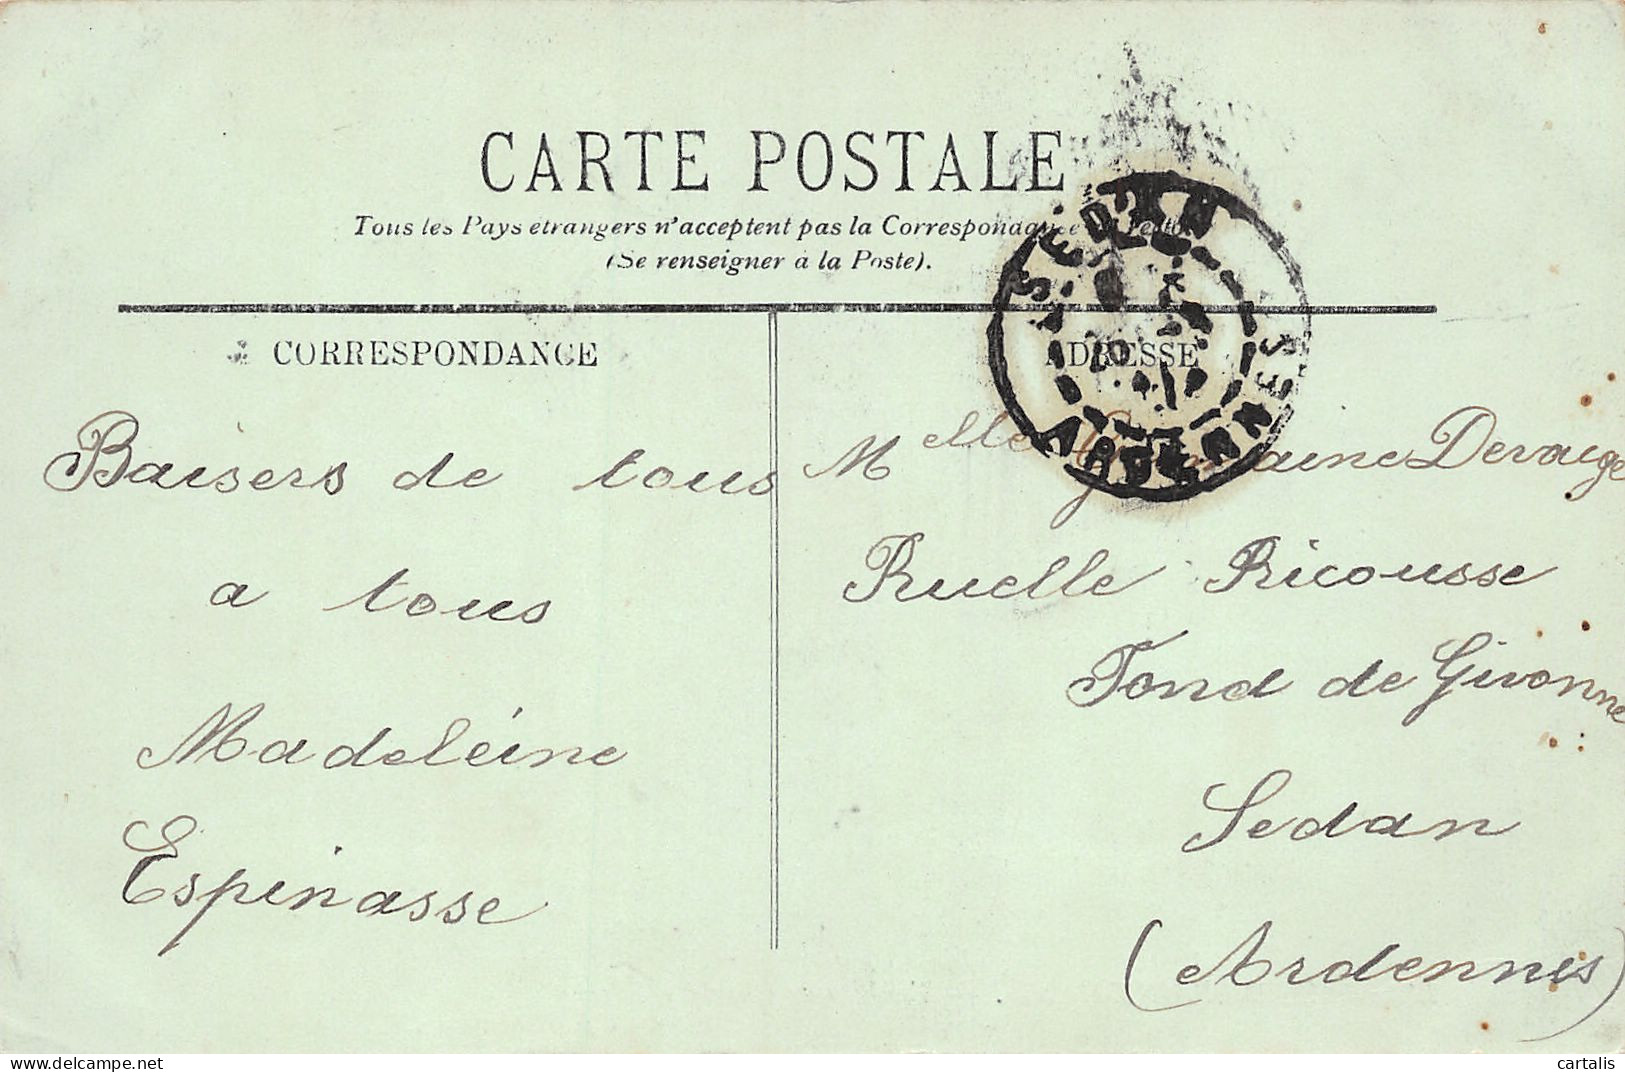 CARTE POSTALE
Tous les Pays étrangers n'acceptent pas la Correspondance au recto
(Se renseigner à la Poste).
CORRESPONDANCE
ADRESSE
SEDAN
ARDENNES
Baisers de tous
a tous
Madeléine
Espinasse
Melle Germaine
Ruelle Ricousse
Fond de Givonne
Sedan
(Ardennes)
cartalis